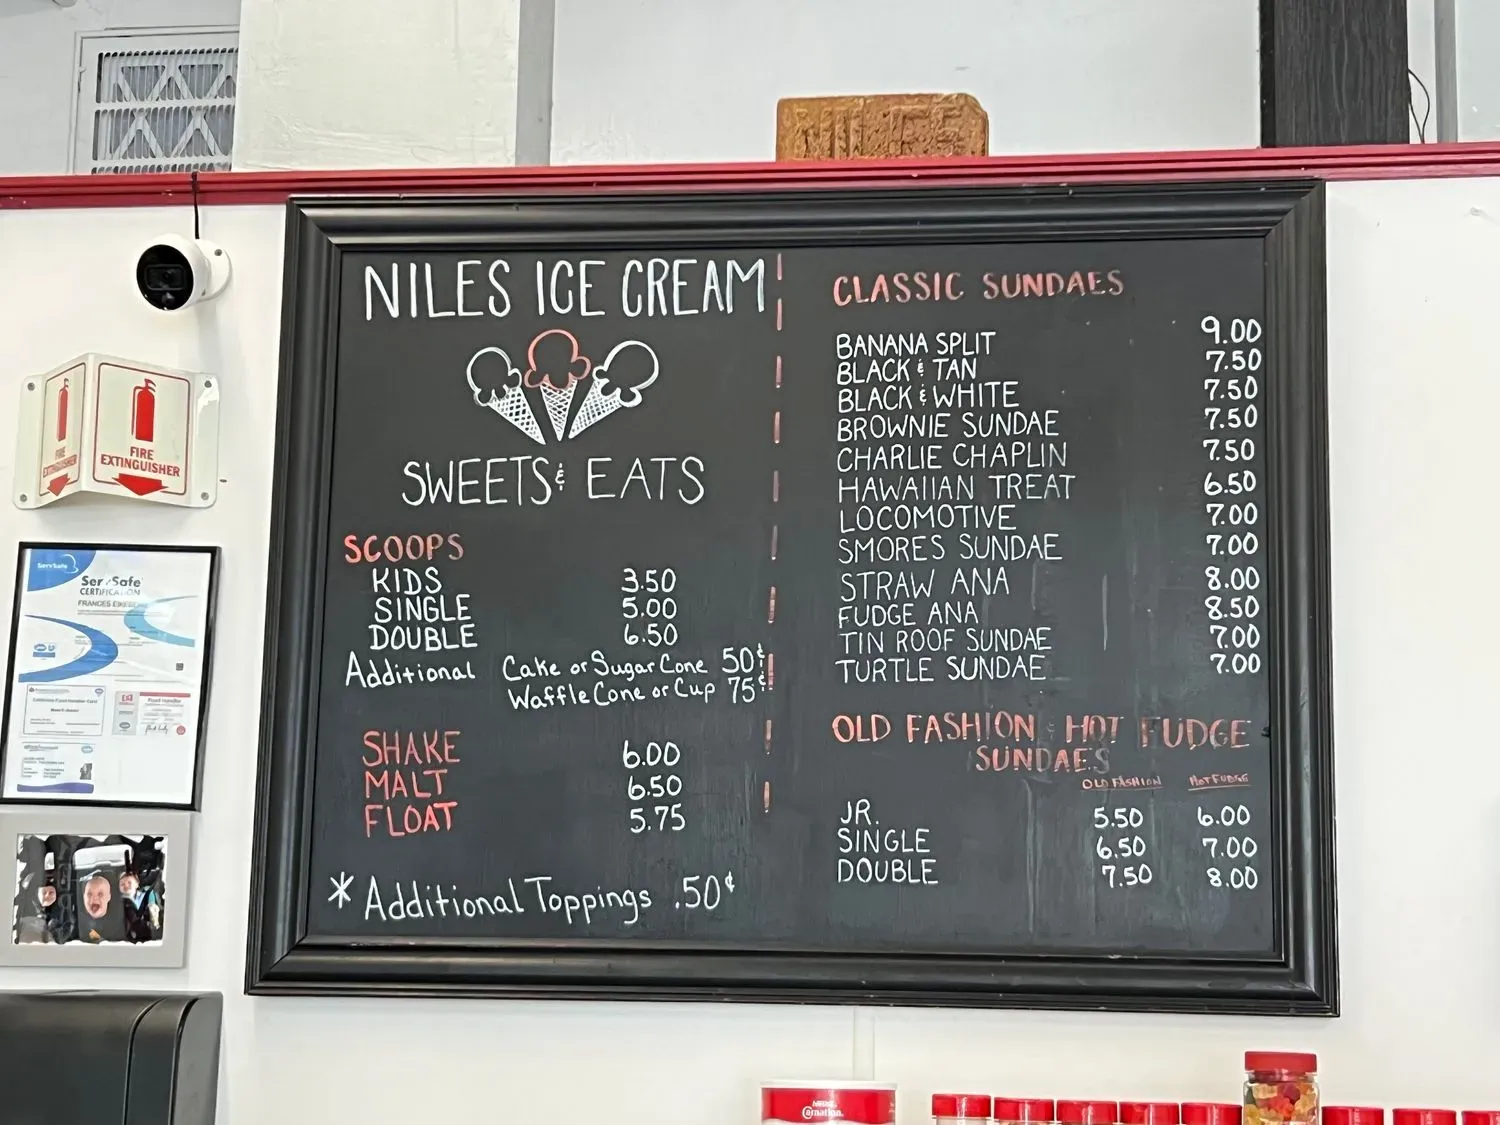 NILES ICE CREAM
SWEETS & EATS
SCOOPS
KIDS 3.50
SINGLE 5.00
DOUBLE 6.50
Additional Cake or Sugar Cone 50¢
Waffle Cone or Cup 75¢
SHAKE 6.00
MALT 6.50
FLOAT 5.75
* Additional Toppings .50¢
CLASSIC SUNDAES
BANANA SPLIT 9.00
BLACK & TAN 7.50
BLACK & WHITE 7.50
BROWNIE SUNDAE 7.50
CHARLIE CHAPLIN 7.50
HAWAIIAN TREAT 6.50
LOCOMOTIVE 7.00
SMORES SUNDAE 7.00
STRAW ANA 8.00
FUDGE ANA 8.50
TIN ROOF SUNDAE 7.00
TURTLE SUNDAE 7.00
OLD FASHION & HOT FUDGE
SUNDAES
OLD FASHION HOT FUDGE
JR. 5.50 6.00
SINGLE 6.50 7.00
DOUBLE 7.50 8.00
FIRE
EXTINGUISHER
FIRE
EXTINGUISHER
ServSafe
ServSafe
CERTIFICATION
FRANCES
Carnation.